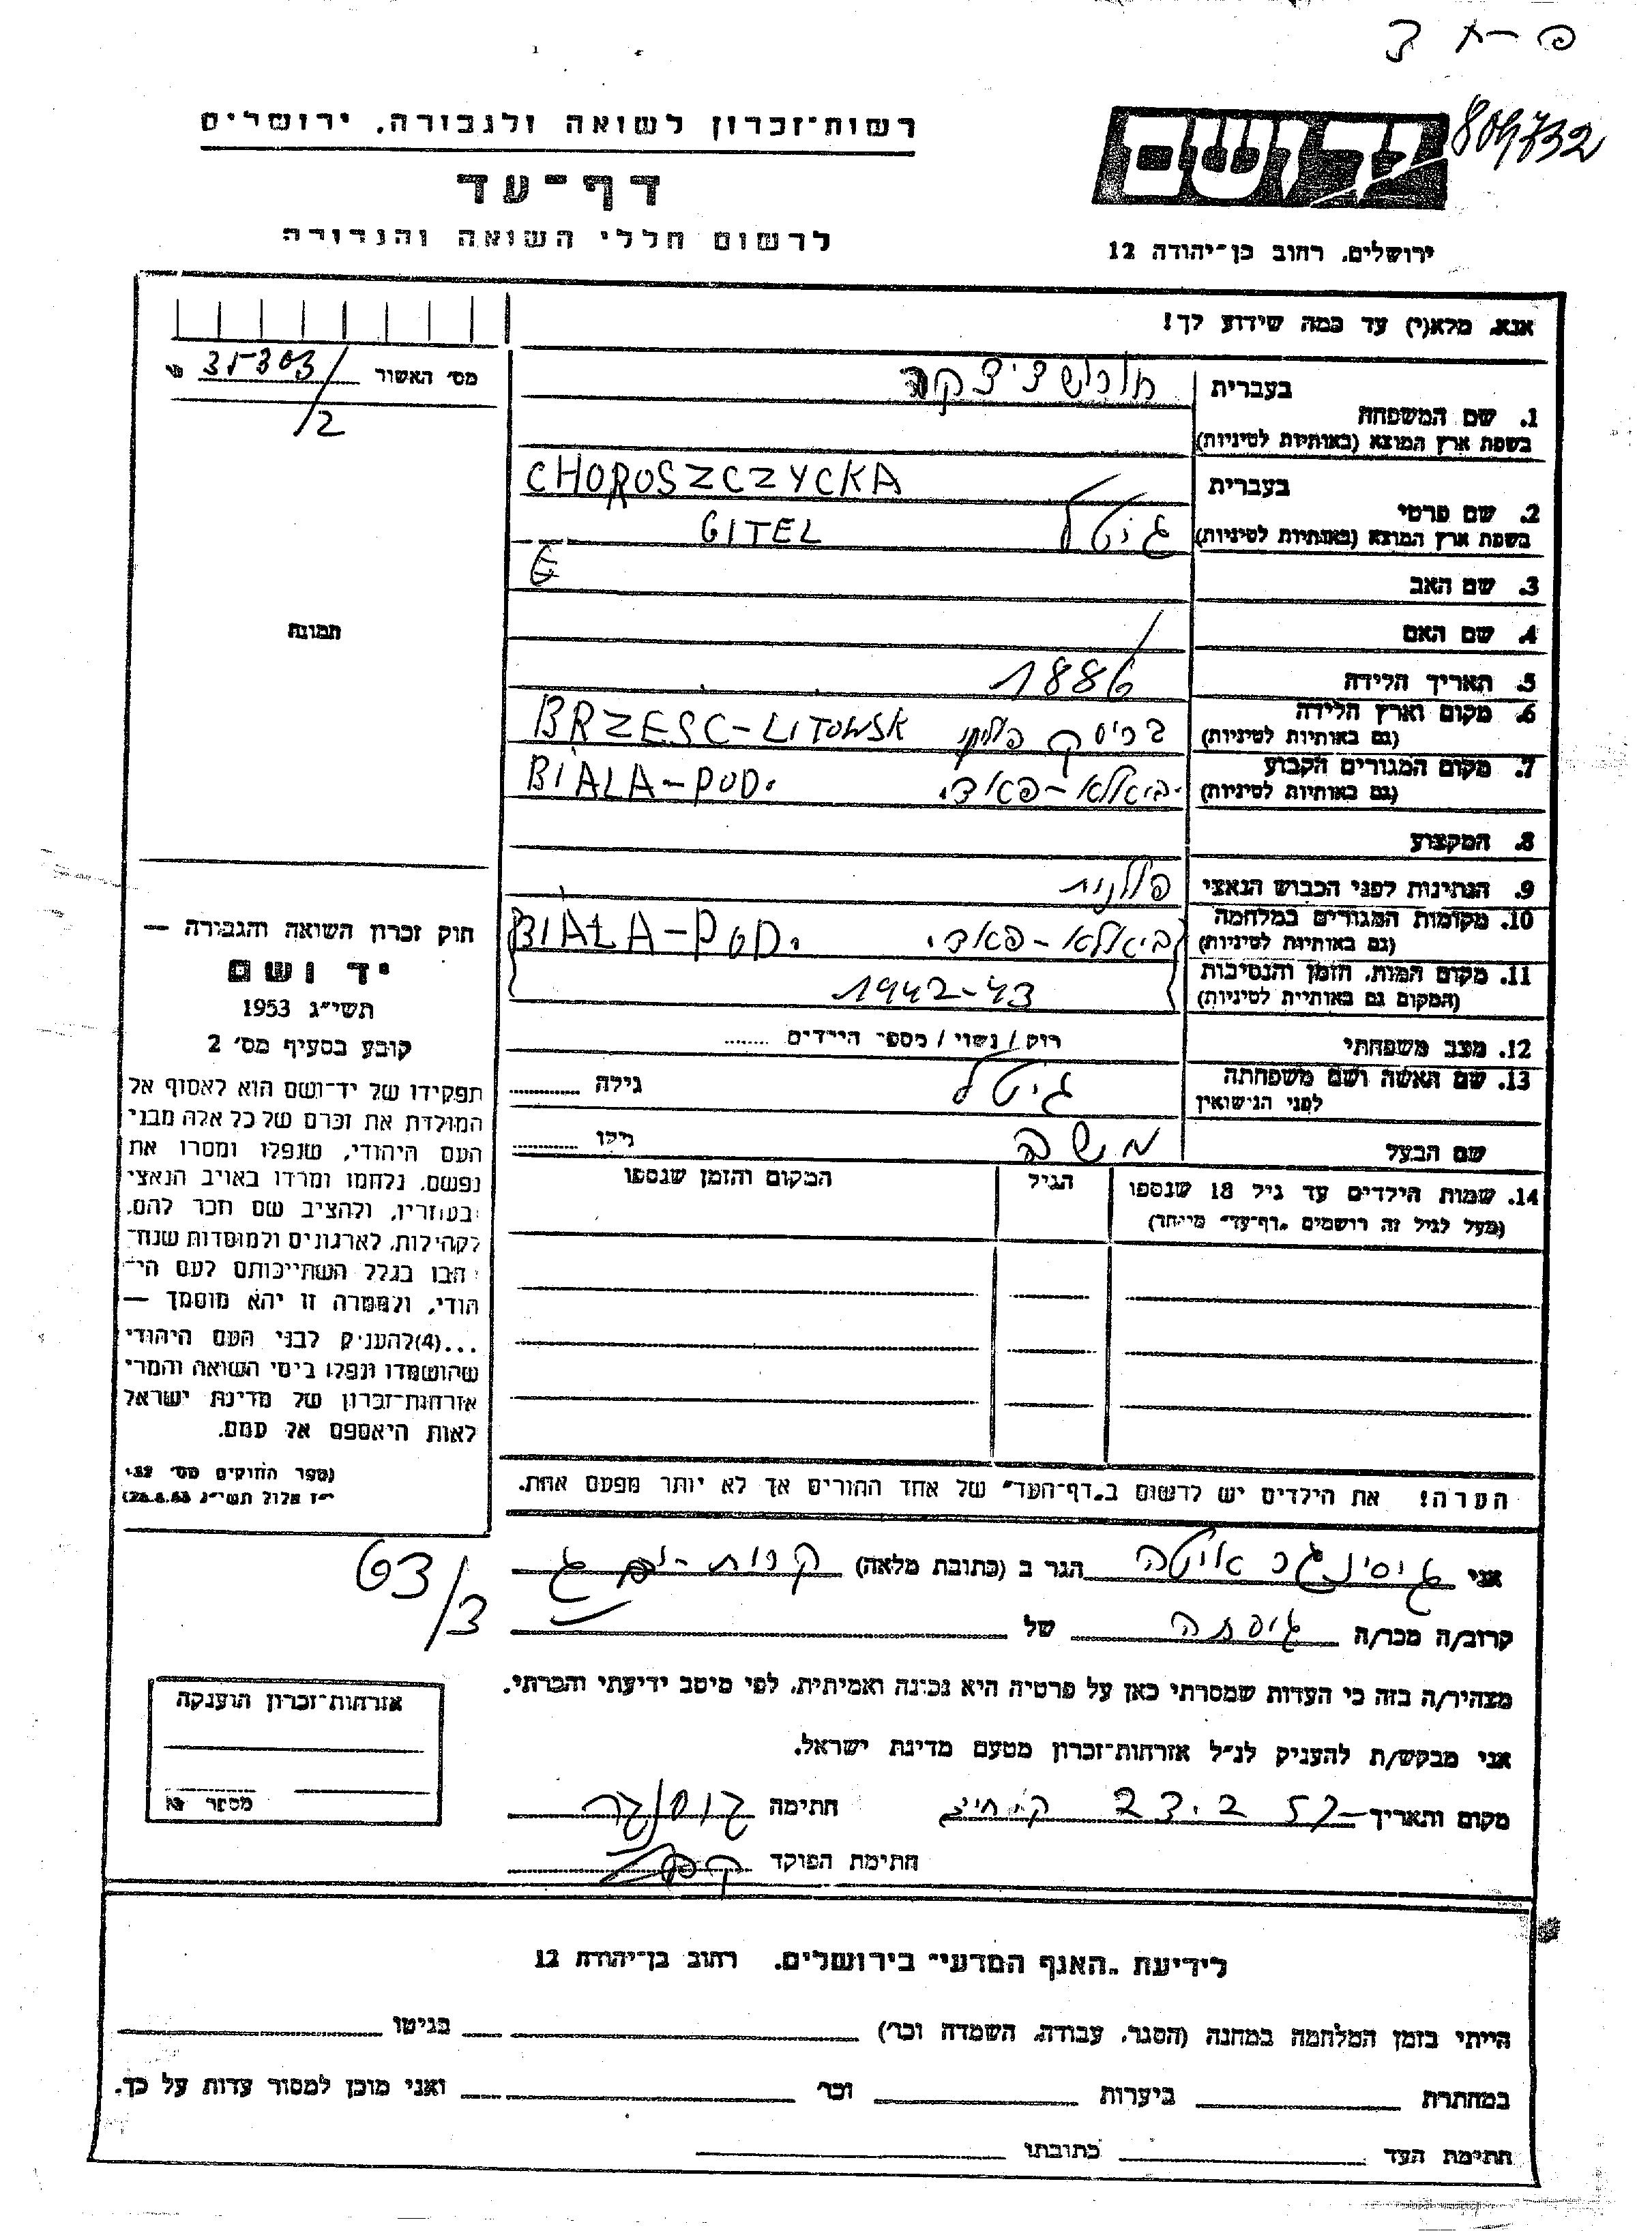 פ-א ד
809732
יד ושם
רשות־זכרון לשואה ולגבורה, ירושלים
דף־עד
לרשום חללי השואה והגבורה
ירושלים, רחוב בן־יהודה 12
אנא, מלא(י) עד כמה שידוע לך!
מס׳ האשור 35303/2
1. שם המשפחה בעברית
בשפת ארץ המוצא (באותיות לטיניות)
CHOROSZCZYCKA
2. שם פרטי בעברית גיטל
בשפת ארץ המוצא (באותיות לטיניות) GITEL
3. שם האב
4. שם האם
5. תאריך הלידה 1886
6. מקום וארץ הלידה
(גם באותיות לטיניות) בריסק פולין BRZESC-LITOWSK
7. מקום המגורים הקבוע
(גם באותיות לטיניות) ביאלא-פאד. BIALA-POD.
8. המקצוע
9. הנתינות לפני הכבוש הנאצי פולנית
10. מקומות המגורים במלחמה
(גם באותיות לטיניות) ביאלא-פאד. BIAŁA-POD.
11. מקום המות, הזמן והנסיבות
(המקום גם באותיות לטיניות) 1942-43
12. מצב משפחתי רוק / נשוי / מספר הילדים ........
13. שם האשה ושם משפחתה
לפני הנישואין גיטל גילה
שם הבעל משה גילו
14. שמות הילדים עד גיל 18 שנספו הגיל המקום והזמן שנספו
(מעל לגיל זה רושמים "דף־עד" מיוחד)
תמונה
חוק זכרון השואה והגבורה —
יד ושם
תשי"ג 1953
קובע בסעיף מס׳ 2
תפקידו של יד־ושם הוא לאסוף אל
המולדת את זכרם של כל אלה מבני
העם היהודי, שנפלו ומסרו את
נפשם, נלחמו ומרדו באויב הנאצי
ובעוזריו, ולהציב שם וזכר להם,
לקהילות, לארגונים ולמוסדות שנח־
רבו בגלל השתייכותם לעם הי־
הודי, ולמטרה זו יהא מוסמך —
...(4) להעניק לבני העם היהודי
שהושמדו ונפלו בימי השואה והמרי
אזרחות־זכרון של מדינת ישראל
לאות היאספם אל עמם.
(ספר החוקים מס׳ 132,
י"ז אלול תשי"ג 28.8.53)
הערה! את הילדים יש לרשום ב"דף־העד" של אחד ההורים אך לא יותר מפעם אחת.
63/3
אני הגר ב (כתובת מלאה) קרית-ים ג
קרוב/ה מכר/ה גיסתה של
מצהיר/ה בזה כי העדות שמסרתי כאן על פרטיה היא נכונה ואמיתית, לפי מיטב ידיעתי והכרתי.
אני מבקש/ת להעניק לנ"ל אזרחות־זכרון מטעם מדינת ישראל.
מקום ותאריך 23.2.57 חתימה
חתימת הפוקד
אזרחות־זכרון הוענקה
מספר
לידיעת "האגף המדעי" בירושלים, רחוב בן־יהודה 12
הייתי בזמן המלחמה במחנה (הסגר, עבודה, השמדה וכר) בגיטו
במחתרת ביערות וכר ואני מוכן למסור עדות על כך.
חתימת העד כתובתו